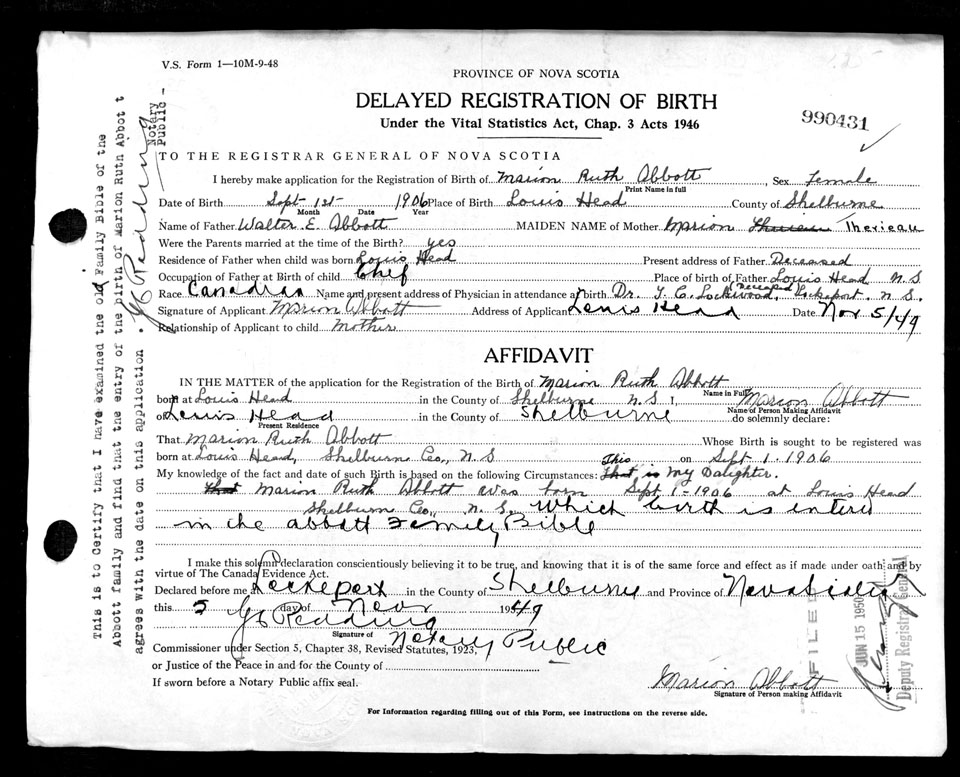 V.S. Form 1—10M-9-48
PROVINCE OF NOVA SCOTIA
DELAYED REGISTRATION OF BIRTH
Under the Vital Statistics Act, Chap. 3 Acts 1946
990431
TO THE REGISTRAR GENERAL OF NOVA SCOTIA
I hereby make application for the Registration of Birth of Marion Ruth Abbott, Sex Female
Print Name in full
Date of Birth Sept 1st 1906 Place of Birth Louis Head County of Shelburne
Month Date Year
Name of Father Walter E. Abbott MAIDEN NAME of Mother Marion Therieau
Were the Parents married at the time of the Birth? yes
Residence of Father when child was born Louis Head Present address of Father Deceased
Occupation of Father at Birth of child Chef Place of birth of Father Louis Head N.S.
Race Canadian Name and present address of Physician in attendance at birth Dr. T. C. Lockwood, (Deceased) Lockeport. N.S.
Signature of Applicant Marion Abbott Address of Applicant Lewis Head Date Nov 5/49
Relationship of Applicant to child Mother
AFFIDAVIT
IN THE MATTER of the application for the Registration of the Birth of Marion Ruth Abbott
Name in Full
born at Louis Head in the County of Shelburne N.S I, Marion Abbott
Name of Person Making Affidavit
of Lewis Head in the County of Shelburne do solemnly declare:
Present Residence
That Marion Ruth Abbott Whose Birth is sought to be registered was
born at Louis Head, Shelburn Co., N.S on Sept 1. 1906
My knowledge of the fact and date of such Birth is based on the following Circumstances: This is My Daughter.
That Marion Ruth Abbott was born Sept 1-1906 at Louis Head
Shelburn Co., N.S. which birth is entered
in the abbott Family Bible
I make this solemn declaration conscientiously believing it to be true, and knowing that it is of the same force and effect as if made under oath and by
virtue of The Canada Evidence Act.
Declared before me Lockeport in the County of Shelburne and Province of Nova Scotia
this 5 day of Nov 1949
Signature of
Notary Public
Commissioner under Section 5, Chapter 38, Revised Statutes, 1923,
or Justice of the Peace in and for the County of
If sworn before a Notary Public affix seal.
Marion Abbott
Signature of Person making Affidavit
For Information regarding filling out of this Form, see instructions on the reverse side.
This is to Certify that I have examined the old Family Bible of the
Abbott family and find that the entry of the birth of Marion Ruth Abbot t
agrees with the date on this application.
Notary
Public -
FILED
JUN 15 1950
Deputy Registrar General